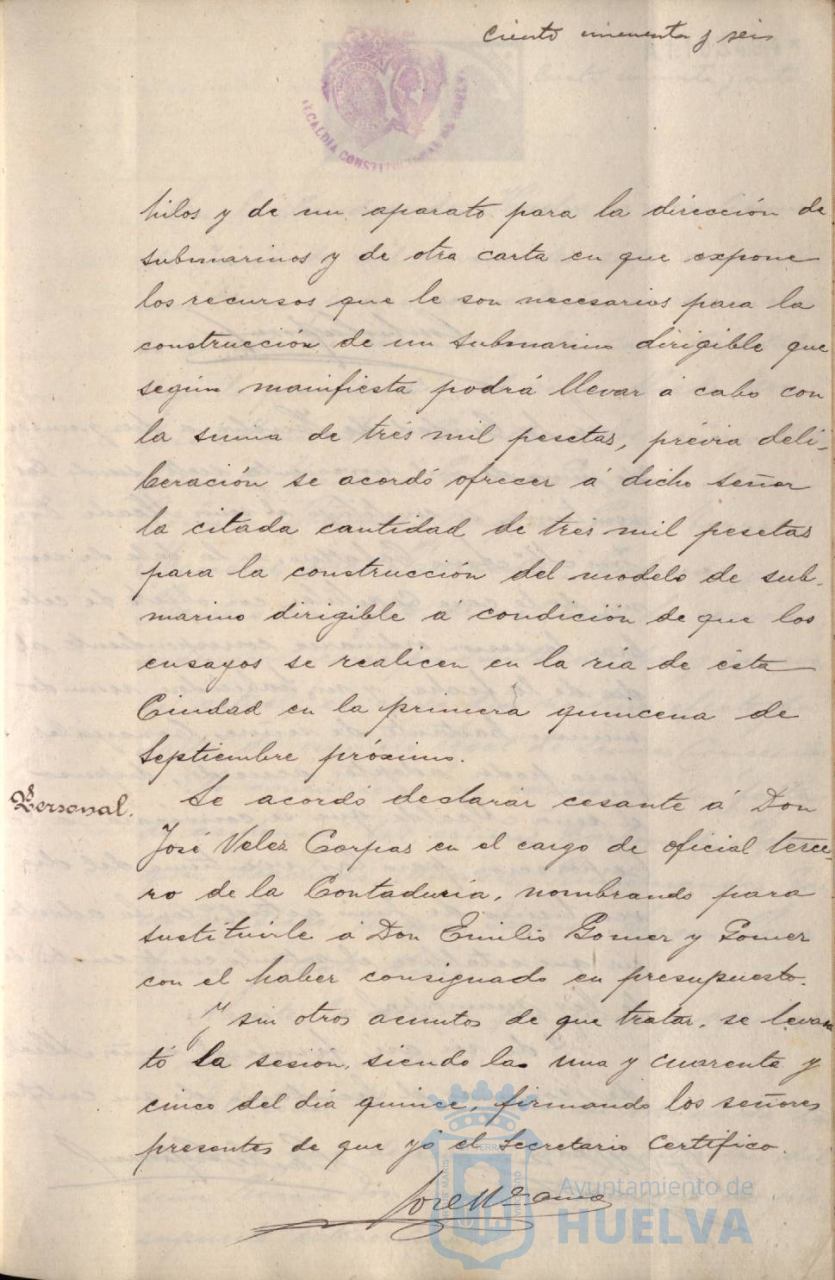 Ciento cincuenta y seis
ALCALDIA CONSTITUCIONAL DE HUELVA
hilos y de un aparato para la dirección de
submarinos y de otra carta en que expone
los recursos que le son necesarios para la
construcción de un submarino dirigible que
según manifiesta podrá llevar á cabo con
la suma de tres mil pesetas, prévia deli-
beración se acordó ofrecer á dicho señor
la citada cantidad de tres mil pesetas
para la construcción del modelo de sub-
marino dirigible á condición de que los
ensayos se realicen en la ria de ésta
Ciudad en la primera quincena de
Septiembre próximo.
Personal.
Se acordó declarar cesante á Don
José Velez Corpas en el cargo de oficial terce-
ro de la Contaduria, nombrando para
sustituirle á Don Emilio Gomez y Gomez
con el haber consignado en presupuesto.
Y sin otros asuntos de que tratar, se levan
tó la sesión, siendo las una y cuarenta y
cinco del día quince, firmando los señores
presentes de que yo el Secretario Certifico.
Ayuntamiento de
HUELVA